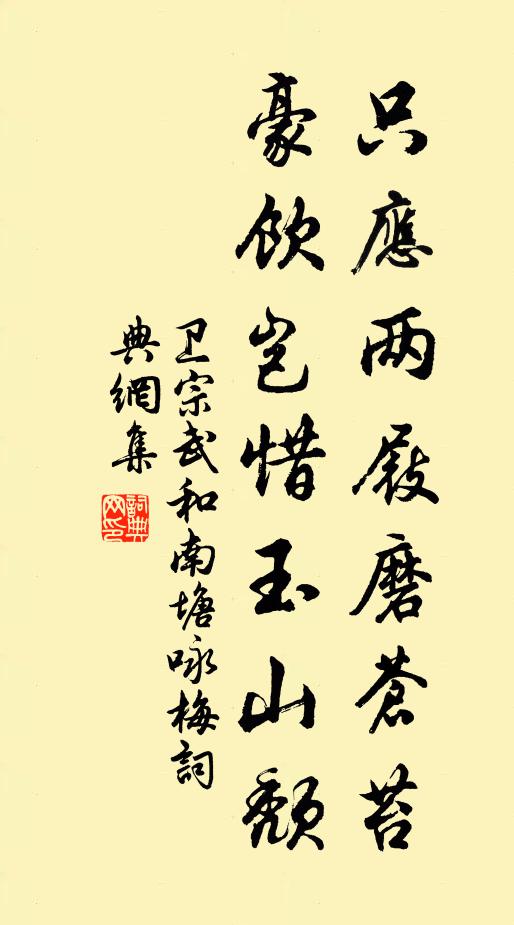 只應兩屐磨蒼苔
豪飲豈惜玉山頹
卫宗武和南塘咏梅詞
典網集
詞典
网印